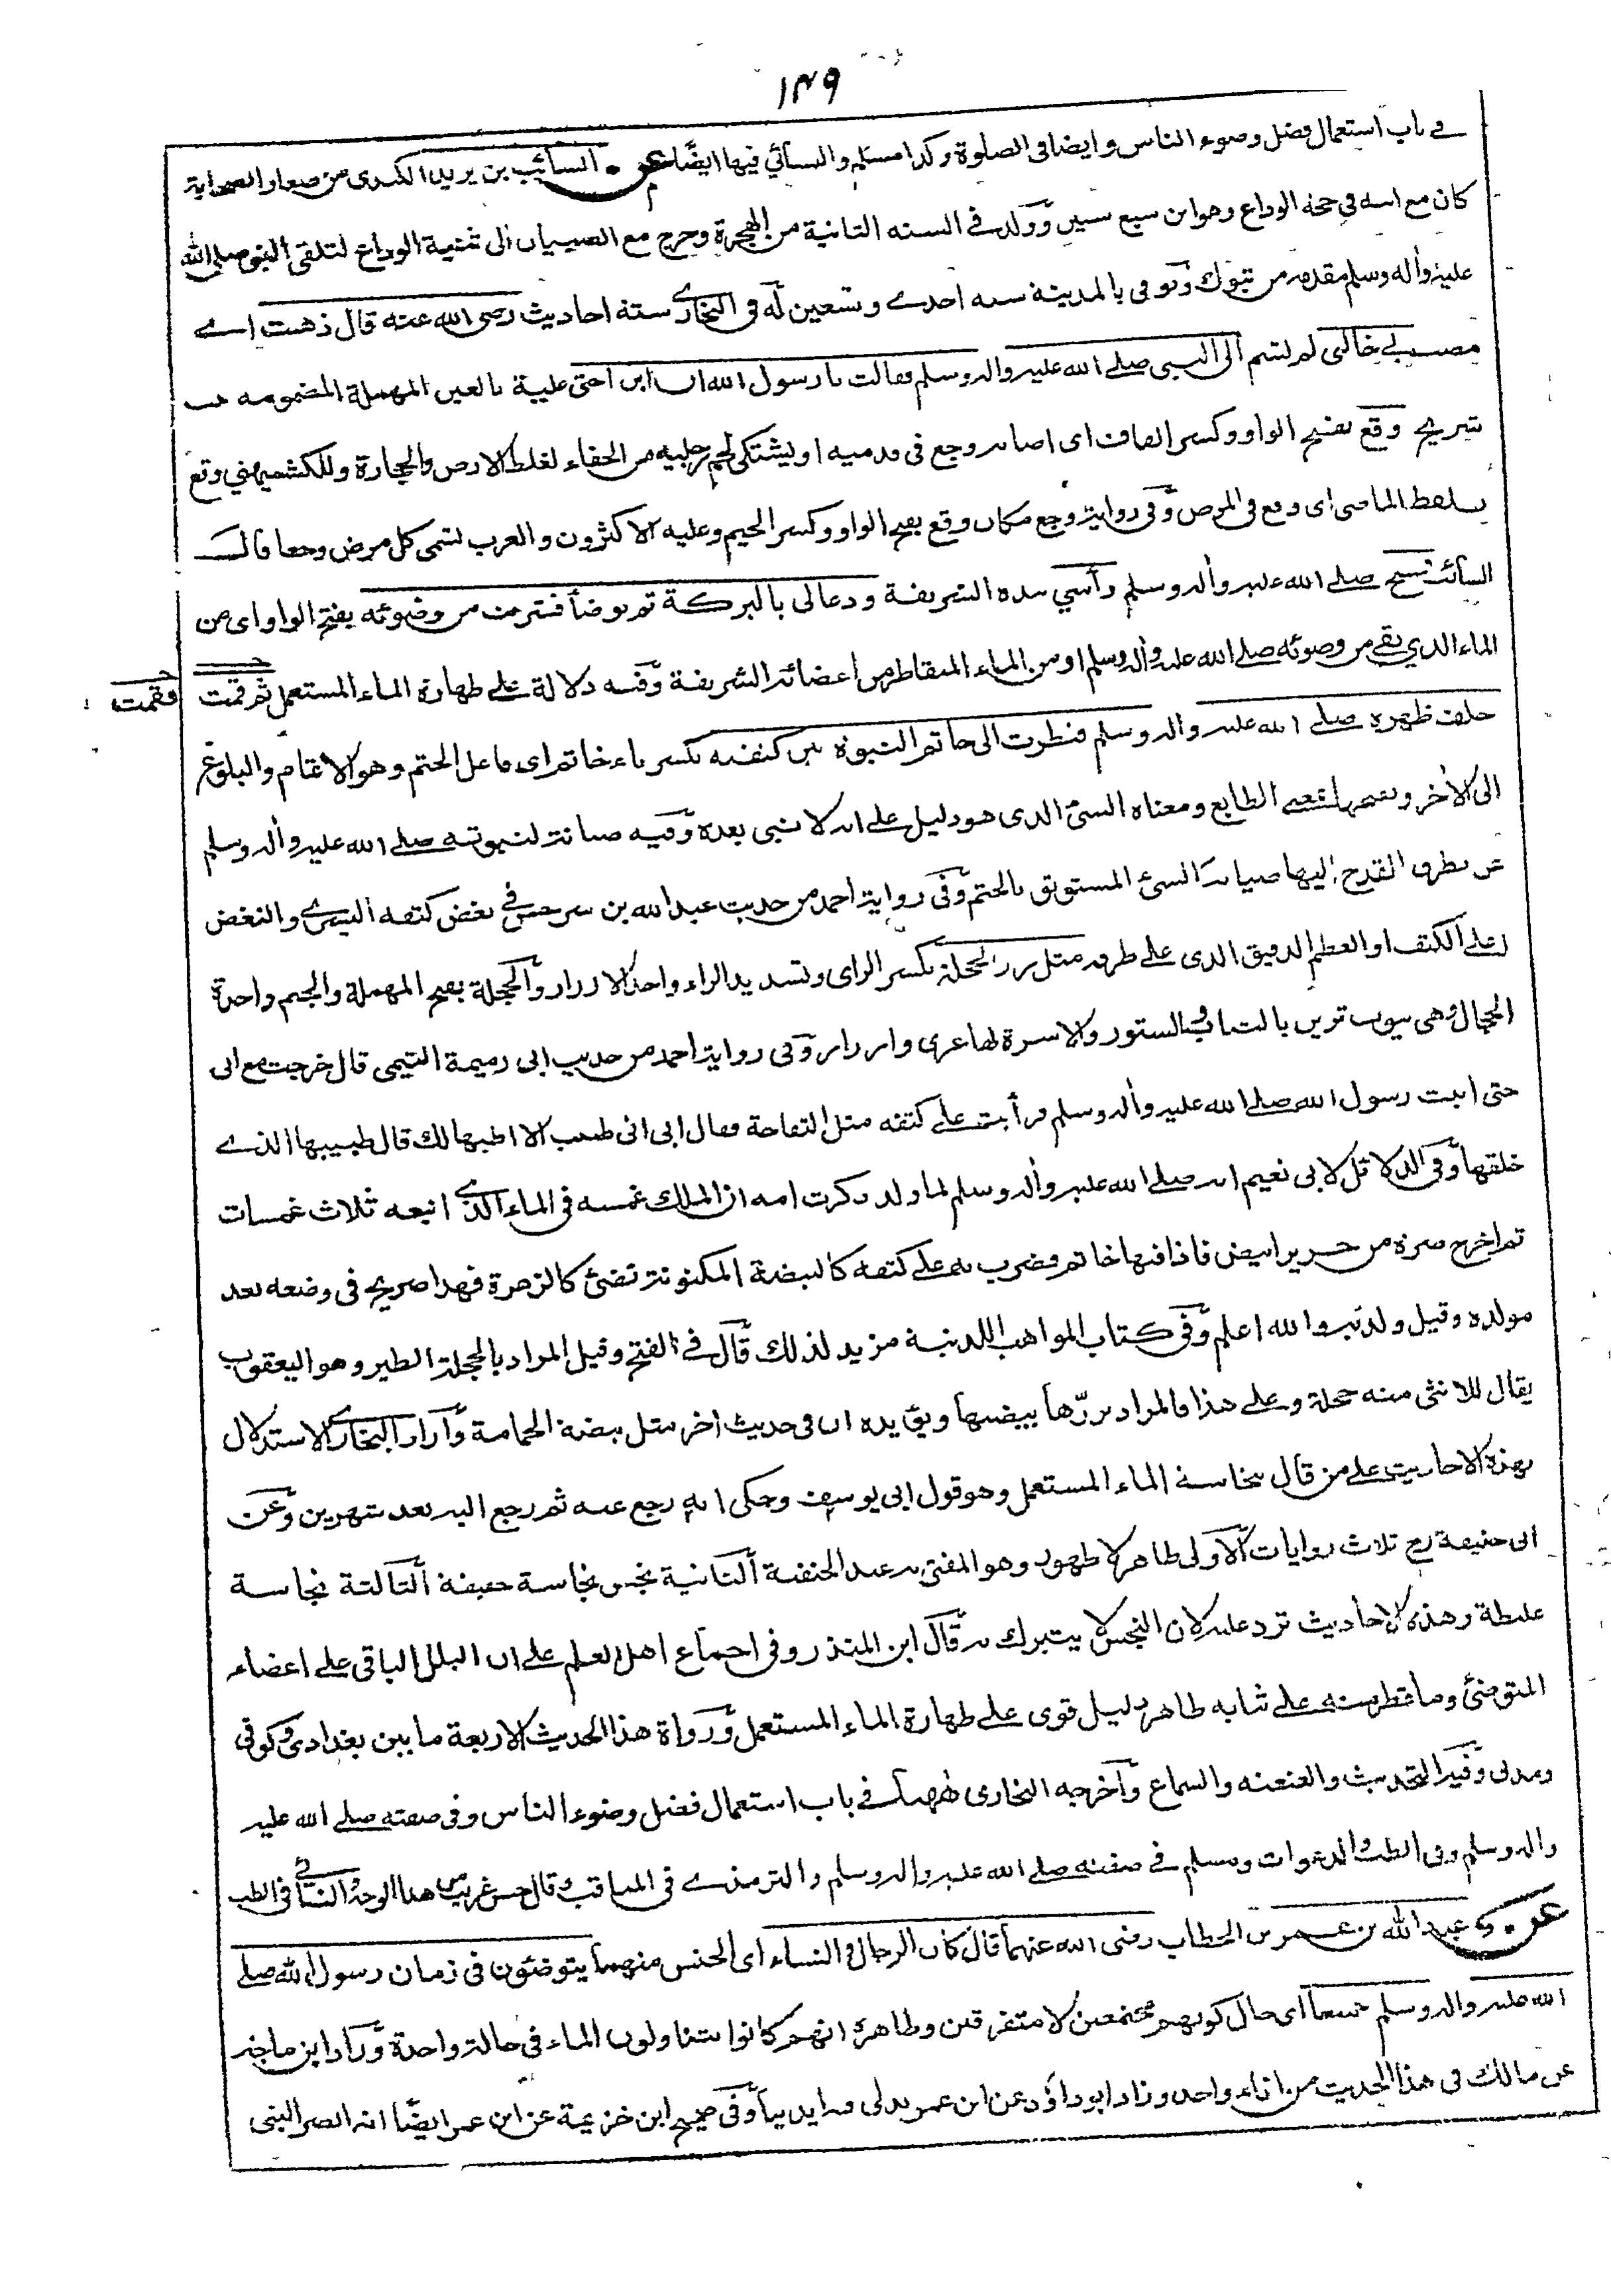 ١٣٩
في باب استعمال فضل وضوء الناس وايضا في الصلوة وكذا مسلم والنسائي فيها ايضًا عن السائب بن يزيد الكندى من صغار الصحابة
كان مع ابيه في حجة الوداع وهو ابن سبع سنين وولد في السنة الثانية من الهجرة وخرج مع الصبيان الى ثنية الوداع لتلقى النبى صلى الله
عليه واله وسلم مقدمه من تبوك وتوفى بالمدينة سنة احدے وتسعين له فى البخارے ستة احاديث رضى الله عنه قال ذهبت
بي خالتى الى النبى صلے الله عليه واله وسلم فقالت يا رسول الله ان ابن اختى علية بالعين المهملة المضمومه
شريح وقع بفتح الواو وكسر القاف اى اصابه وجع فى قدميه او يشتكى لحم رجليه من الحفاء لغلظ الارض والحجارة وللكشميهني وقع
بلفظ الماضى اى وقع فى المرض وفى رواية وجع مكان وقع بفتح الواو وكسر الجيم وعليه الاكثرون والعرب تسمى كل مرض وجعا قال
السائب فمسح صلے الله عليه واله وسلم رأسي بيده الشريفة ودعا لى بالبركة ثم توضأ فشربت من وضوئه بفتح الواو اى من
الماء الذي بقي من وضوئه صلے الله عليه واله وسلم او من الماء المتقاطر من اعضائه الشريفة وفيه دلالة علے طهارة الماء المستعمل ثم قمت
فقمت
خلف ظهره صلے الله عليه واله وسلم فنظرت الى خاتم النبوة بين كتفيه بكسر تاء خاتم اى فاعل الختم وهو الاتمام والبلوغ
الى الاخر وبفتحها بمعنے الطابع ومعناه الشئ الذى هو دليل علے انه لا نبى بعده وفيه صيانة لنبوته صلے الله عليه واله وسلم
عن تطرق القدح اليها صيانة الشئ المستوثق بالختم وفى رواية احمد من حديث عبد الله بن سرجس في نغض كتفه اليسرے والنغض
اعلے الكتف او العظم الدقيق الذى علے طرفه مثل زر الحجلة بكسر الزاى وتشديد الراء واحد الازرار والحجلة بفتح المهملة والجيم واحدة
الحجال وهى بيوت تزين بالثياب والستور والاسرة لها عرى وازرار وفى رواية احمد من حديث ابى رميثة التيمى قال خرجت مع ابى
حتى اتيت رسول الله صلے الله عليه واله وسلم فرأيت علے كتفه مثل التفاحة فقال ابى انى طبيب الا اطبها لك قال طبيبها الذے
خلقها وفى الدلائل لابى نعيم انه صلے الله عليه واله وسلم لما ولد ذكرت امه ان الملك غمسه فى الماء الذے انبعه ثلاث غمسات
ثم اخرج صرة من حرير ابيض فاذا فيها خاتم فضرب به علے كتفه كالبيضة المكنونة تضئ كالزهرة فهذا صريح فى وضعه بعد
مولده وقيل ولد به والله اعلم وفى كتاب المواهب اللدنية مزيد لذلك قال في الفتح وقيل المراد بالحجلة الطير وهو اليعقوب
يقال للانثى منه حجلة وعلے هذا فالمراد بزرّها بيضها ويؤيده ان فى حديث اخر مثل بيضة الحمامة واراد البخارى الاستدلال
بهذه الاحاديث علے من قال بنجاسة الماء المستعمل وهو قول ابى يوسف وحكى انه رجع عنه ثم رجع اليه بعد شهرين وعن
ابى حنيفة رح ثلاث روايات الاولى طاهر لا طهور وهو المفتى به عند الحنفية الثانية نجس نجاسة خفيفة الثالثة نجاسة
غليظة وهذه الاحاديث ترد عليه لان النجس لا يتبرك به قال ابن المنذر وفى اجماع اهل العلم علے ان البلل الباقى علے اعضاء
المتوضئ وما قطر منه علے ثيابه طاهر دليل قوى علے طهارة الماء المستعمل ورواة هذا الحديث الاربعة ما بين بغدادى وكوفى
ومدنى وفيه التحديث والعنعنه والسماع واخرجه البخارى في باب استعمال فضل وضوء الناس وفى صفته صلے الله عليه
واله وسلم وفى الطب والدعوات ومسلم في صفته صلے الله عليه واله وسلم والترمذے فى المناقب وقال حسن غريب من هذا الوجه والنسائے فى الطب
عن عبد الله بن عمر بن الخطاب رضى الله عنهما قال كان الرجال والنساء اى الجنس منهما يتوضئون فى زمان رسول الله صلے
الله عليه واله وسلم جميعا اى حال كونهم مجتمعين لا متفرقين وظاهره انهم كانوا يتناولون الماء فى حالة واحدة وزاد ابن ماجه
عن مالك فى هذا الحديث من اناء واحد وزاد ابو داؤد عن ابن عمر ندلى فيه ايدينا وفى صحيح ابن خزيمة عن ابن عمر ايضًا انه ابصر النبى